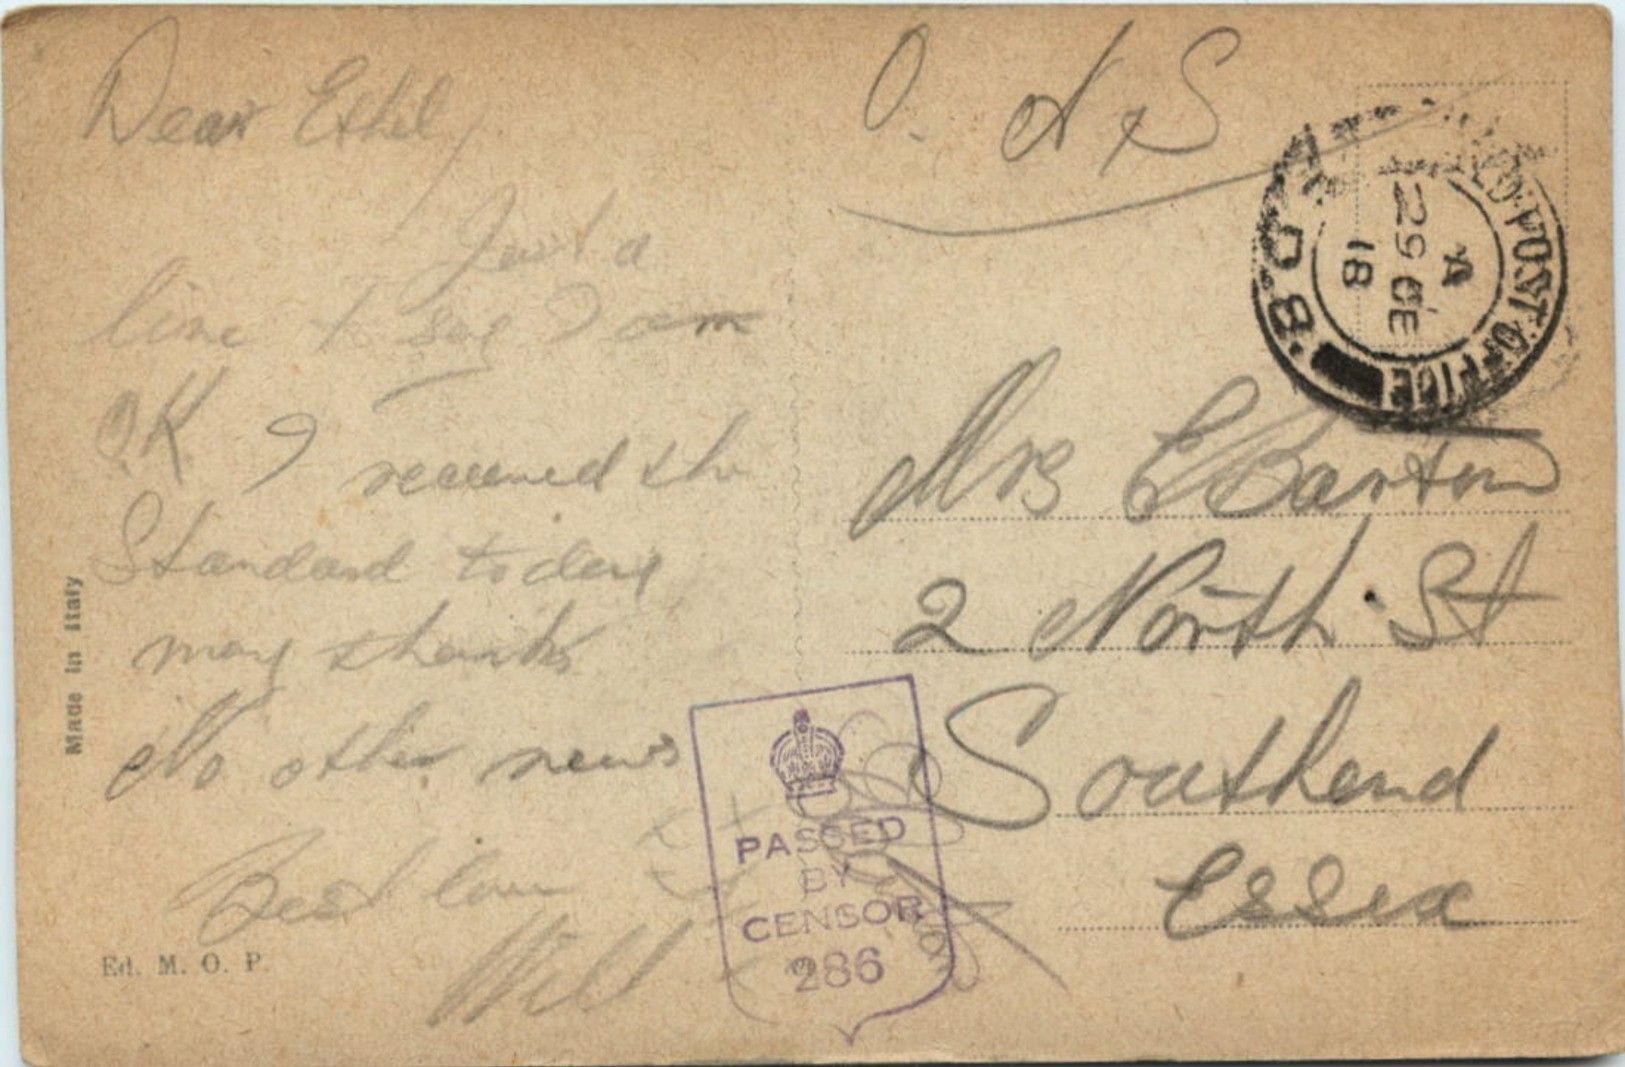 Dear Ethel,
Just a
line to say I am
O.K. I received the
Standard today
many thanks
No other news
Best love
Will
Made in Italy
Ed. M. O. P.
O. A. S
FIELD POST OFFICE
A
29 DE
18
D.8.
Mrs E Barton
2 North St
Southend
Essex
PASSED
BY
CENSOR
286